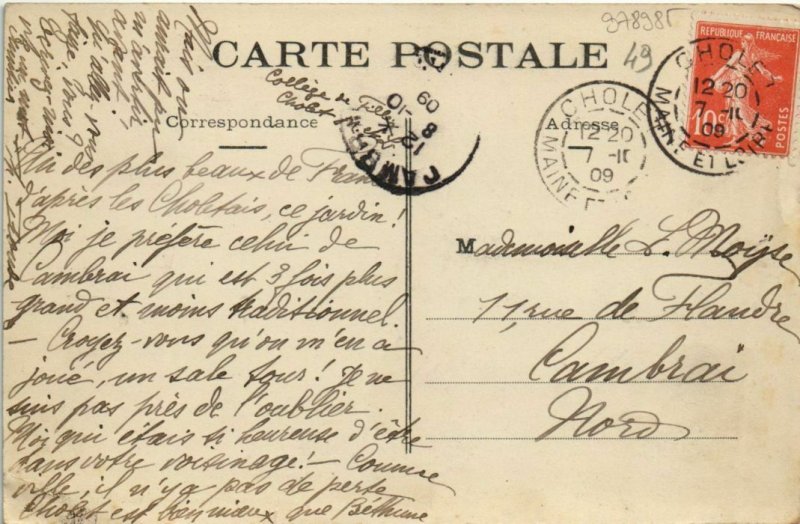 97898
49
CARTE POSTALE
Correspondance
Adresse
Collège de Filles
Cholet
REPUBLIQUE FRANÇAISE
10c
POSTES
CHOLET
12 20
7 - 11
09
MAINE ET LOIRE
CHOLET
12 20
7 - 11
09
MAINE ET
CAMBRAI
8
09
Un des plus beaux de France
d'après les Choletais, ce jardin!
Moi je préfère celui de
Cambrai qui est 3 fois plus
grand et moins traditionnel.
- Croyez-vous qu'on m'en a
joué, un sale tour! Je ne
suis pas près de l'oublier.
Moi qui étais si heureuse d'être
dans votre voisinage! - Comme
ville, il n'y a pas de perte
Cholet est bien mieux que Béthune
Mademoiselle L. Moÿse
11, rue de Flandre
Cambrai
Nord